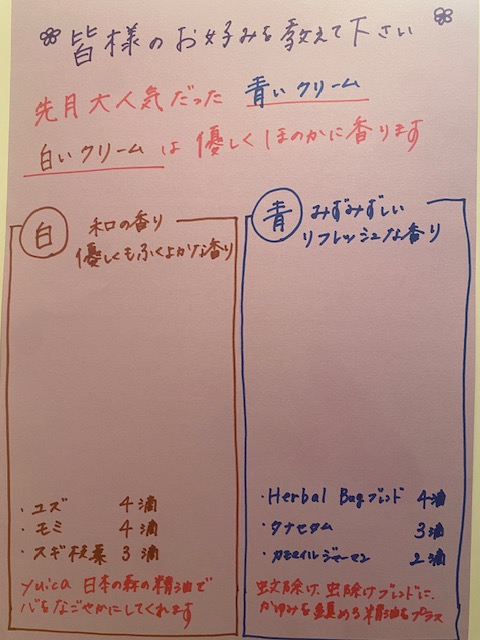 皆様のお好みを教えて下さい
先月大人気だった 青いクリーム
白いクリーム は 優しくほのかに香ります
白 和の香り
優しくもふくよかな香り
・ユズ 4滴
・モミ 4滴
・スギ枝葉 3滴
yuica 日本の森の精油で
心をなごやかにしてくれます
青 みずみずしい
リフレッシュな香り
・Herbal Bugブレンド 4滴
・タナセタム 3滴
・カモマイルジャーマン 2滴
蚊除け、虫除けブレンドに、
かゆみを鎮める精油をプラス